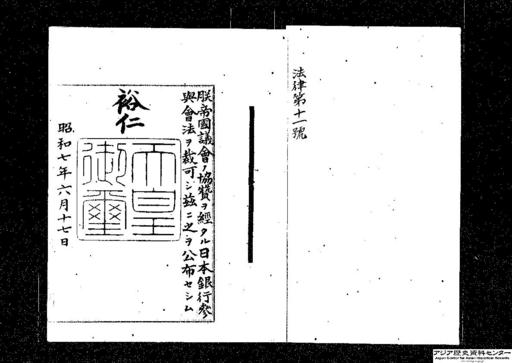 法律第十一號
朕帝國議會ノ協贊ヲ經タル日本銀行參
與會法ヲ裁可シ茲ニ之ヲ公布セシム
裕仁
天皇
御璽
昭和七年六月十七日
アジア歴史資料センター
Japan Center for Asian Historical Records